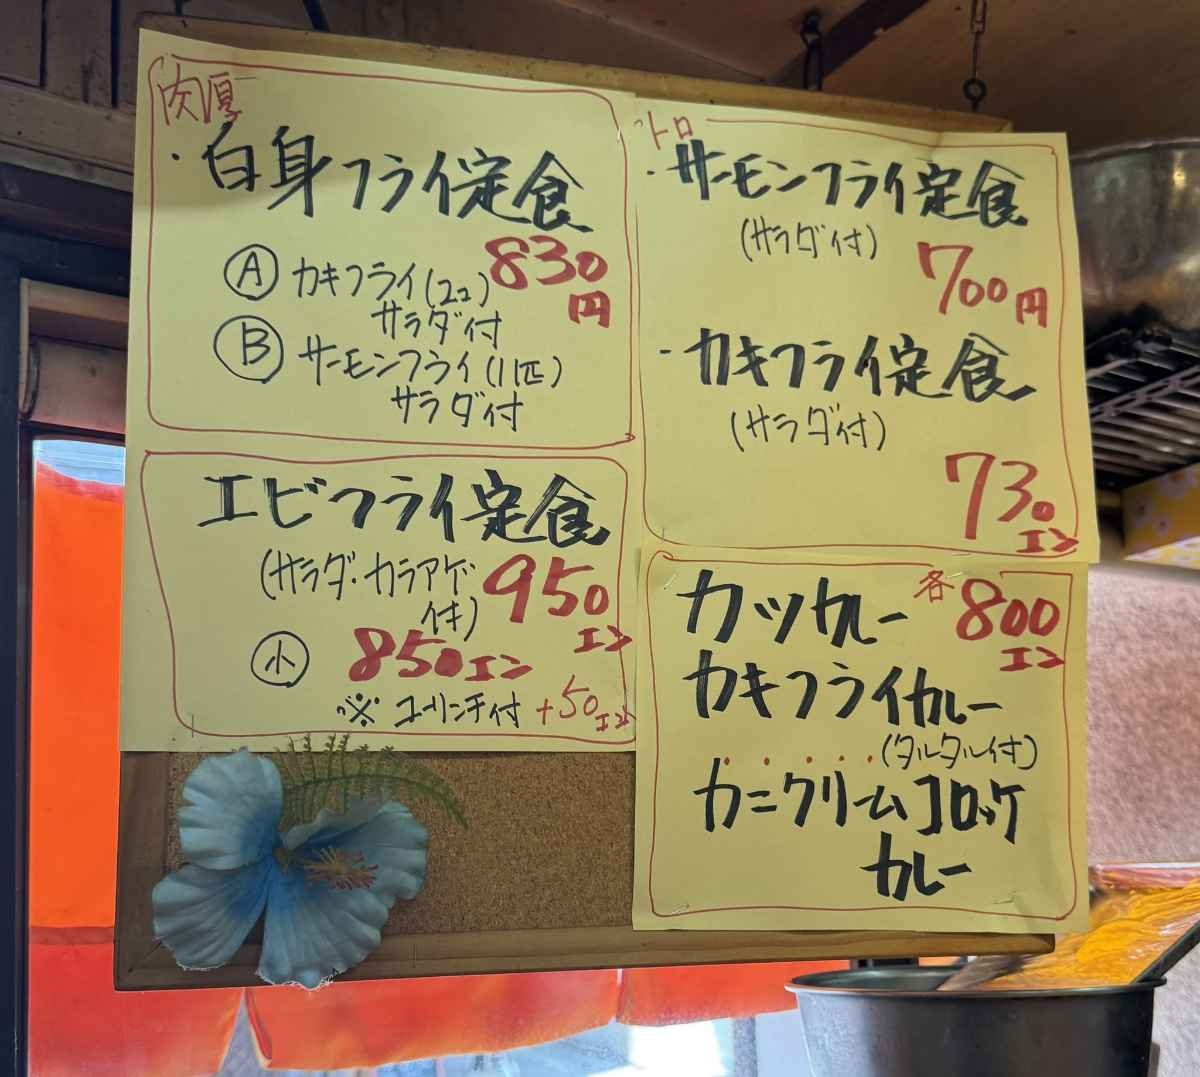 肉厚
・白身フライ定食
830
円
Ⓐ カキフライ(2コ)
サラダ付
Ⓑ サーモンフライ(1匹)
サラダ付
エビフライ定食
(サラダ・カラアゲ
付)
950
エン
㊙
小 850エン
※ ユーリンチ付 +50エン
トロ
・サーモンフライ定食
(サラダ付)
700円
・カキフライ定食
(サラダ付)
730
エン
各800
エン
カツカレー
カキフライカレー
(タルタル付)
カニクリームコロッケ
カレー